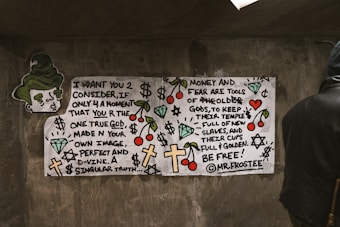 I WANT YOU 2
CONSIDER, IF
ONLY 4 A MOMENT
THAT YOU R THE
ONE TRUE GOD.
MADE N YOUR
OWN IMAGE,
PERFECT AND
D-VINE. A
SINGULAR TRUTH...
MONEY AND
FEAR ARE TOOLS
OF THE OLDE
GODS, TO KEEP
THEIR TEMPLE
FULL OF NEW
SLAVES, AND
THEIR CUPS
FULL & GOLDEN.
BE FREE!
© MR. FROSTEE